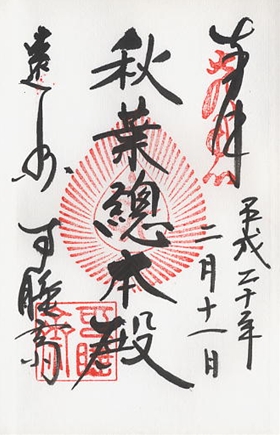 奉拝
平成二十年
二月十一日
秋葉總本殿
遠州 可睡斎